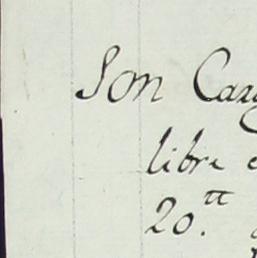 Son Car
libre
20.tt